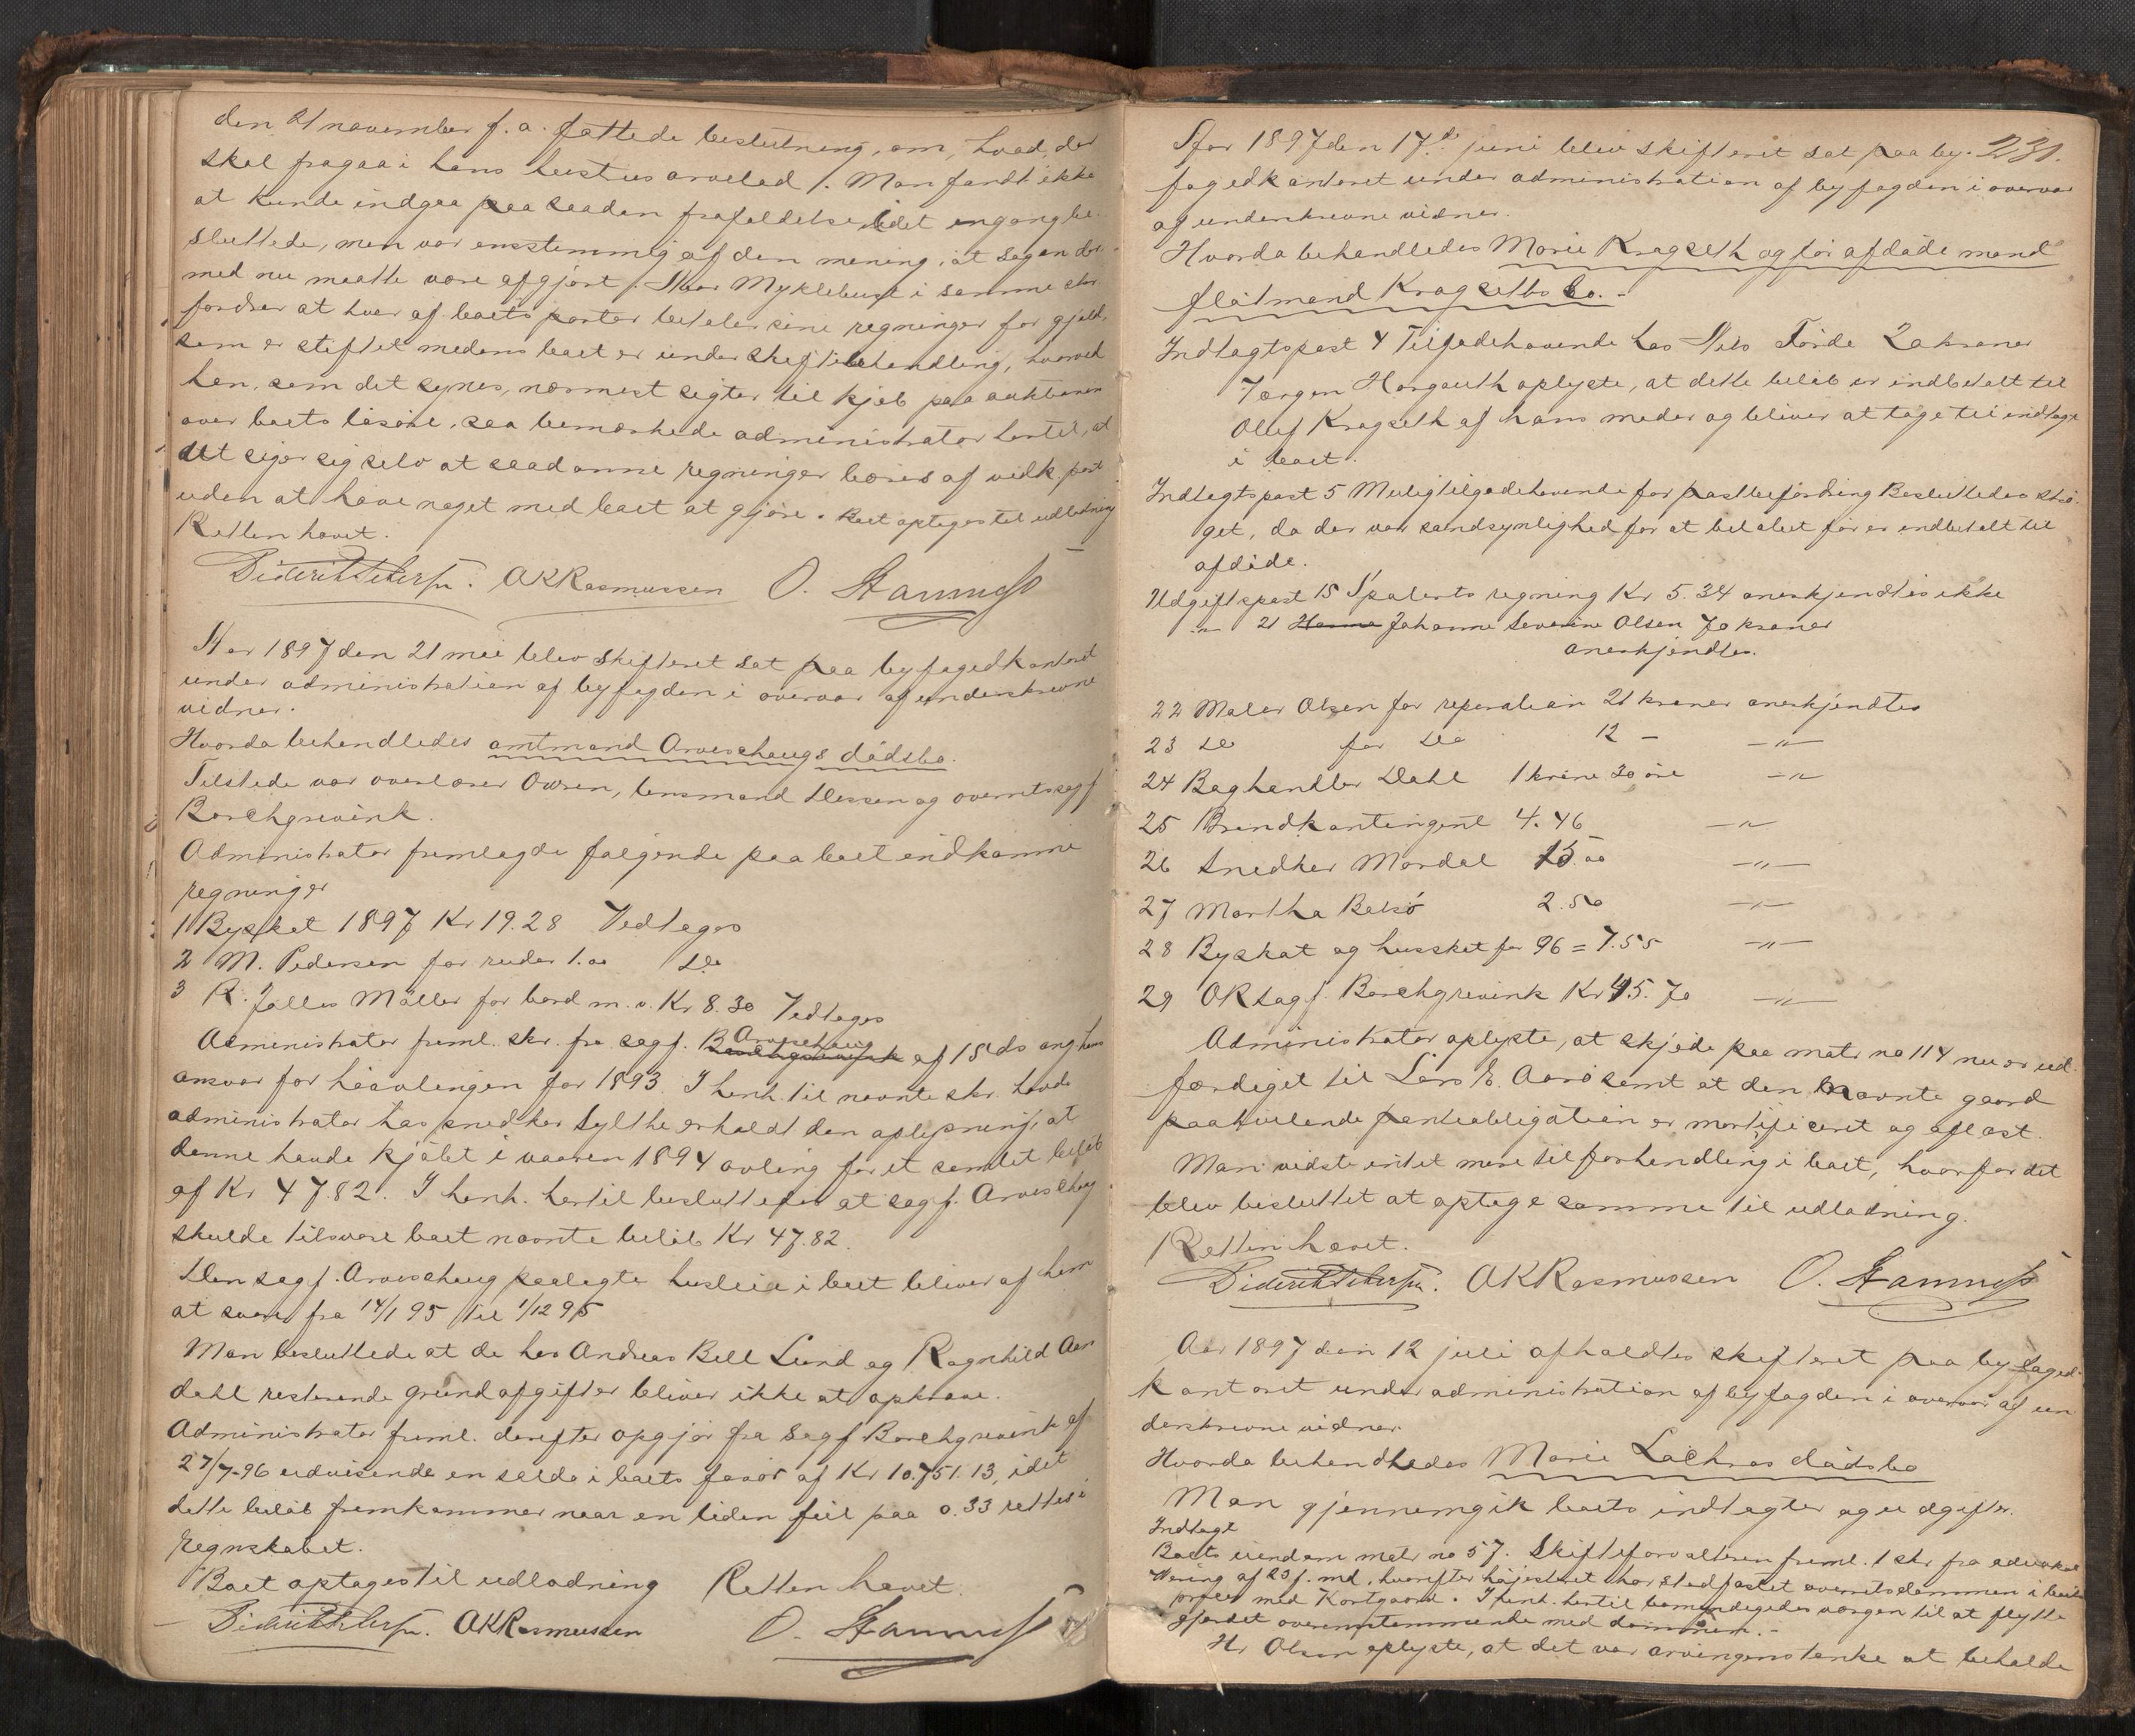 den 21 november f. a. fattede beslutning, om, hvad, der
skal fragaa i hans hustrus arvelod. Man fandt ikke
at kunde indgaa paa saadan frafaldelse, idet engang be-
sluttede, men var enstemmig af den mening, at sagen der-
med nu maatte være afgjort. Naar Myklebust i samme skr
fordrer at hver af boets parter betaler sine regninger for gjæld,
som er stiftet medens boet er under skiftebehandling, hvorved
han, som det synes, nærmest sigter til kjøb paa auktionen
over boets løsøre, saa bemærkede administrator hertil, at
det siger sig selv at saadanne regninger bæres af vedk. part
uden at have noget med boet at gjøre. Boet optages til udlodning
Retten hævet.
OKRasmussen O. Stamnes
Aar 1897 den 21 mai blev skifteret sat paa byfogedkontoret
under administration af byfogden i overvær af underskrevne
vidner.
Hvorda behandledes amtmand Arveschougs dødsbo.
Tilstede var overlærer Owren, lensmand Dessen og overretssagf
Borchgrevink.
Administrator fremlagde følgende paa boet indkomne
regninger
1 Byskat 1897 Kr 19.28 Vedtages
2 M. Pedersen for ruder 1.00 Do
3 R. Jalles Møller for bord m. v. Kr 8.30 Vedtages
Administrator freml. skr. fra sagf. Arveschoug af 18 ds ang hans
ansvar for høavlingen for 1893. I henh. til nævnte skr. havde
administrator hos snedker Sylthe erholdt den oplysning, at
denne havde kjøbt i vaaren 1894 avling for et samlet beløb
af Kr 47.82. I henh. hertil besluttedes at sagf. Arveschoug
skulde tilsvare boet nævnte beløb Kr 47.82.
Den sagf. Arveschoug paalagte husleie i boet bliver af ham
at svare fra 14/1 95 til 1/12 95
Man besluttede at de hos Andreas Bell Lund og Ragnhild Aan
dahl resterende grundafgifter bliver ikke at opkræve.
Administrator freml. derefter opgjør fra Sagf Borchgrevink af
27/7-96 udvisende en saldo i boets favør af Kr 10.751.13, idet
dette beløb fremkommer naar en liden feil paa 0.33 rettes i
regnskabet.
Boet optages til udlodning Retten hævet.
OKRasmussen O. Stamnes
231.
Aar 1897 den 17de juni blev skifteret sat paa by-
fogedkontoret under administration af byfogden i overvær
af underskrevne vidner.
Hvorda behandledes Marie Kragseth og før afdøde mand
flødmand Kragseths bo.
Indtægtspost 4 Tilgodehavende hos Nils Förde 20 kroner
Jørgen Horgauth oplyste, at dette beløb er indbetalt til
Oluf Kragseth af hans moder og bliver at tage til indtægt
i boet.
Indtægtspost 5 Mulig tilgodehavende for postbefordring Besluttedes strø-
get, da der var sandsynlighed for at beløbet før er indbetalt til
afdøde.
Udgiftspost 15 Spalerts regning Kr 5.34 anerkjendtes ikke
-"- 21 Johanne Severine Olsen 70 kroner
anerkjendtes.
22 Maler Olsen for reperation 21 kroner anerkjendtes
23 Do for Do 12 - -"-
24 Boghandler Dahl 1 krone 30 øre -"-
25 Brandkontingent 4.46 -"-
26 Snedker Mordal 15.00 -"-
27 Martha Bolsø 2.50 -"-
28 Byskat og husskat for 96 = 7.55 -"-
29 OR Sagf. Borchgrevink Kr 45.70 -"-
Administrator oplyste, at skjøde paa matr no 114 nu er ud-
færdiget til Lars E. Aarø samt at den nævnte gaard
paahvilende panteobligation er mortificeret og aflæst.
Man vidste intet mere til forhandling i boet, hvorfor det
blev besluttet at optage samme til udlodning.
Retten hævet.
OKRasmussen O. Stamnes
Aar 1897 den 12 juli afholdtes skifteret paa byfoged-
kontoret under administration af byfogden i overvær af un
derskrevne vidner.
Hvorda behandledes Marie Lackras dødsbo
Man gjennemgik boets indtægter og udgifter.
Indtægt
Boets eiendom matr no 57. Skifteforvalteren freml. 1 skr fra advokat
af 23 f. md, hvorefter høiesteret har stadfæstet overretsdommen i boets
proces med Kortgaard. I henh. hertil bemyndigedes værgen til at flytte
gjærdet overensstemmende med dommen.
Hr Olsen oplyste, at det var arvingens tanke at beholde